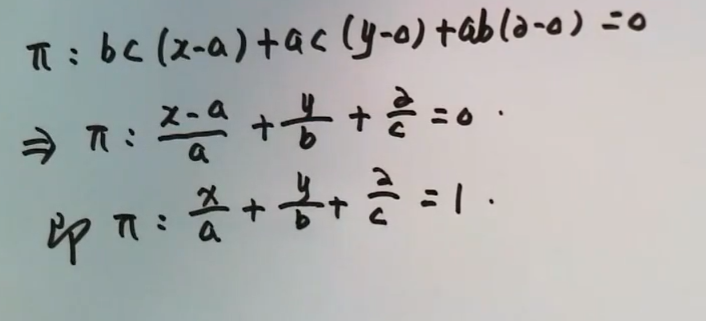 π: bc(x-a)+ac(y-0)+ab(z-0)=0
⇒ π: \frac{x-a}{a}+\frac{y}{b}+\frac{z}{c}=0.
即 π: \frac{x}{a}+\frac{y}{b}+\frac{z}{c}=1.